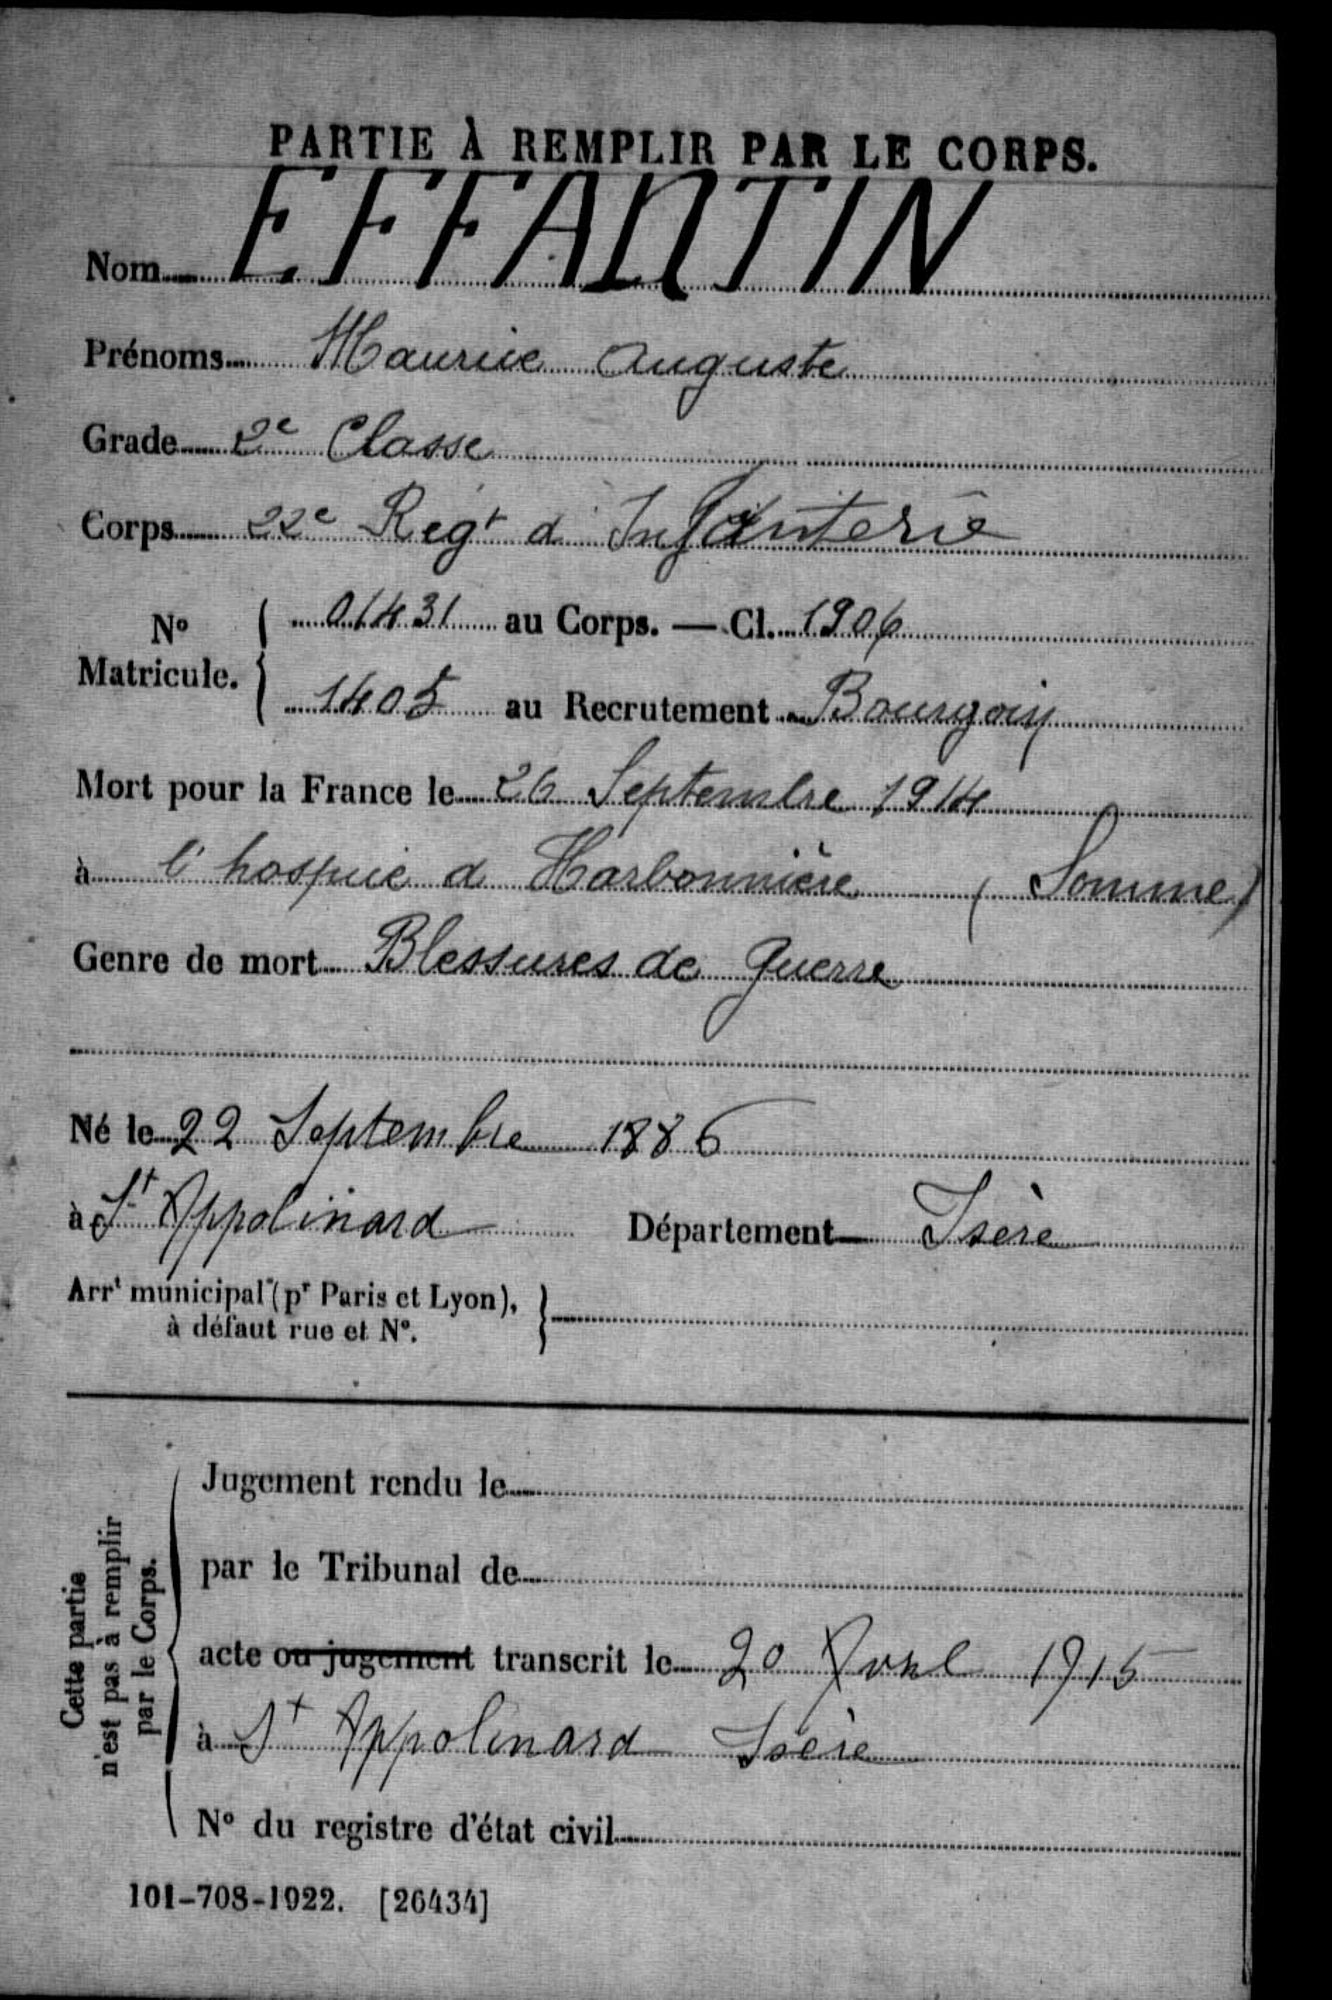 PARTIE À REMPLIR PAR LE CORPS.
Nom EFFANTIN
Prénoms Maurice Auguste
Grade 2e Classe
Corps 22e Regt d Infanterie
No Matricule. { 01431 au Corps. — Cl. 1906
1405 au Recrutement Bourgoin
Mort pour la France le 26 Septembre 1914
à l'hospice d Harbonnière (Somme)
Genre de mort Blessures de Guerre
Né le 22 Septembre 1886
à St Appolinard Département Isère
Arrt municipal (pr Paris et Lyon), à défaut rue et No. }
Cette partie n'est pas à remplir par le Corps.
Jugement rendu le
par le Tribunal de
acte ou jugement transcrit le 20 Avril 1915
à St Appolinard Isère
No du registre d'état civil
101-708-1922. [26434]